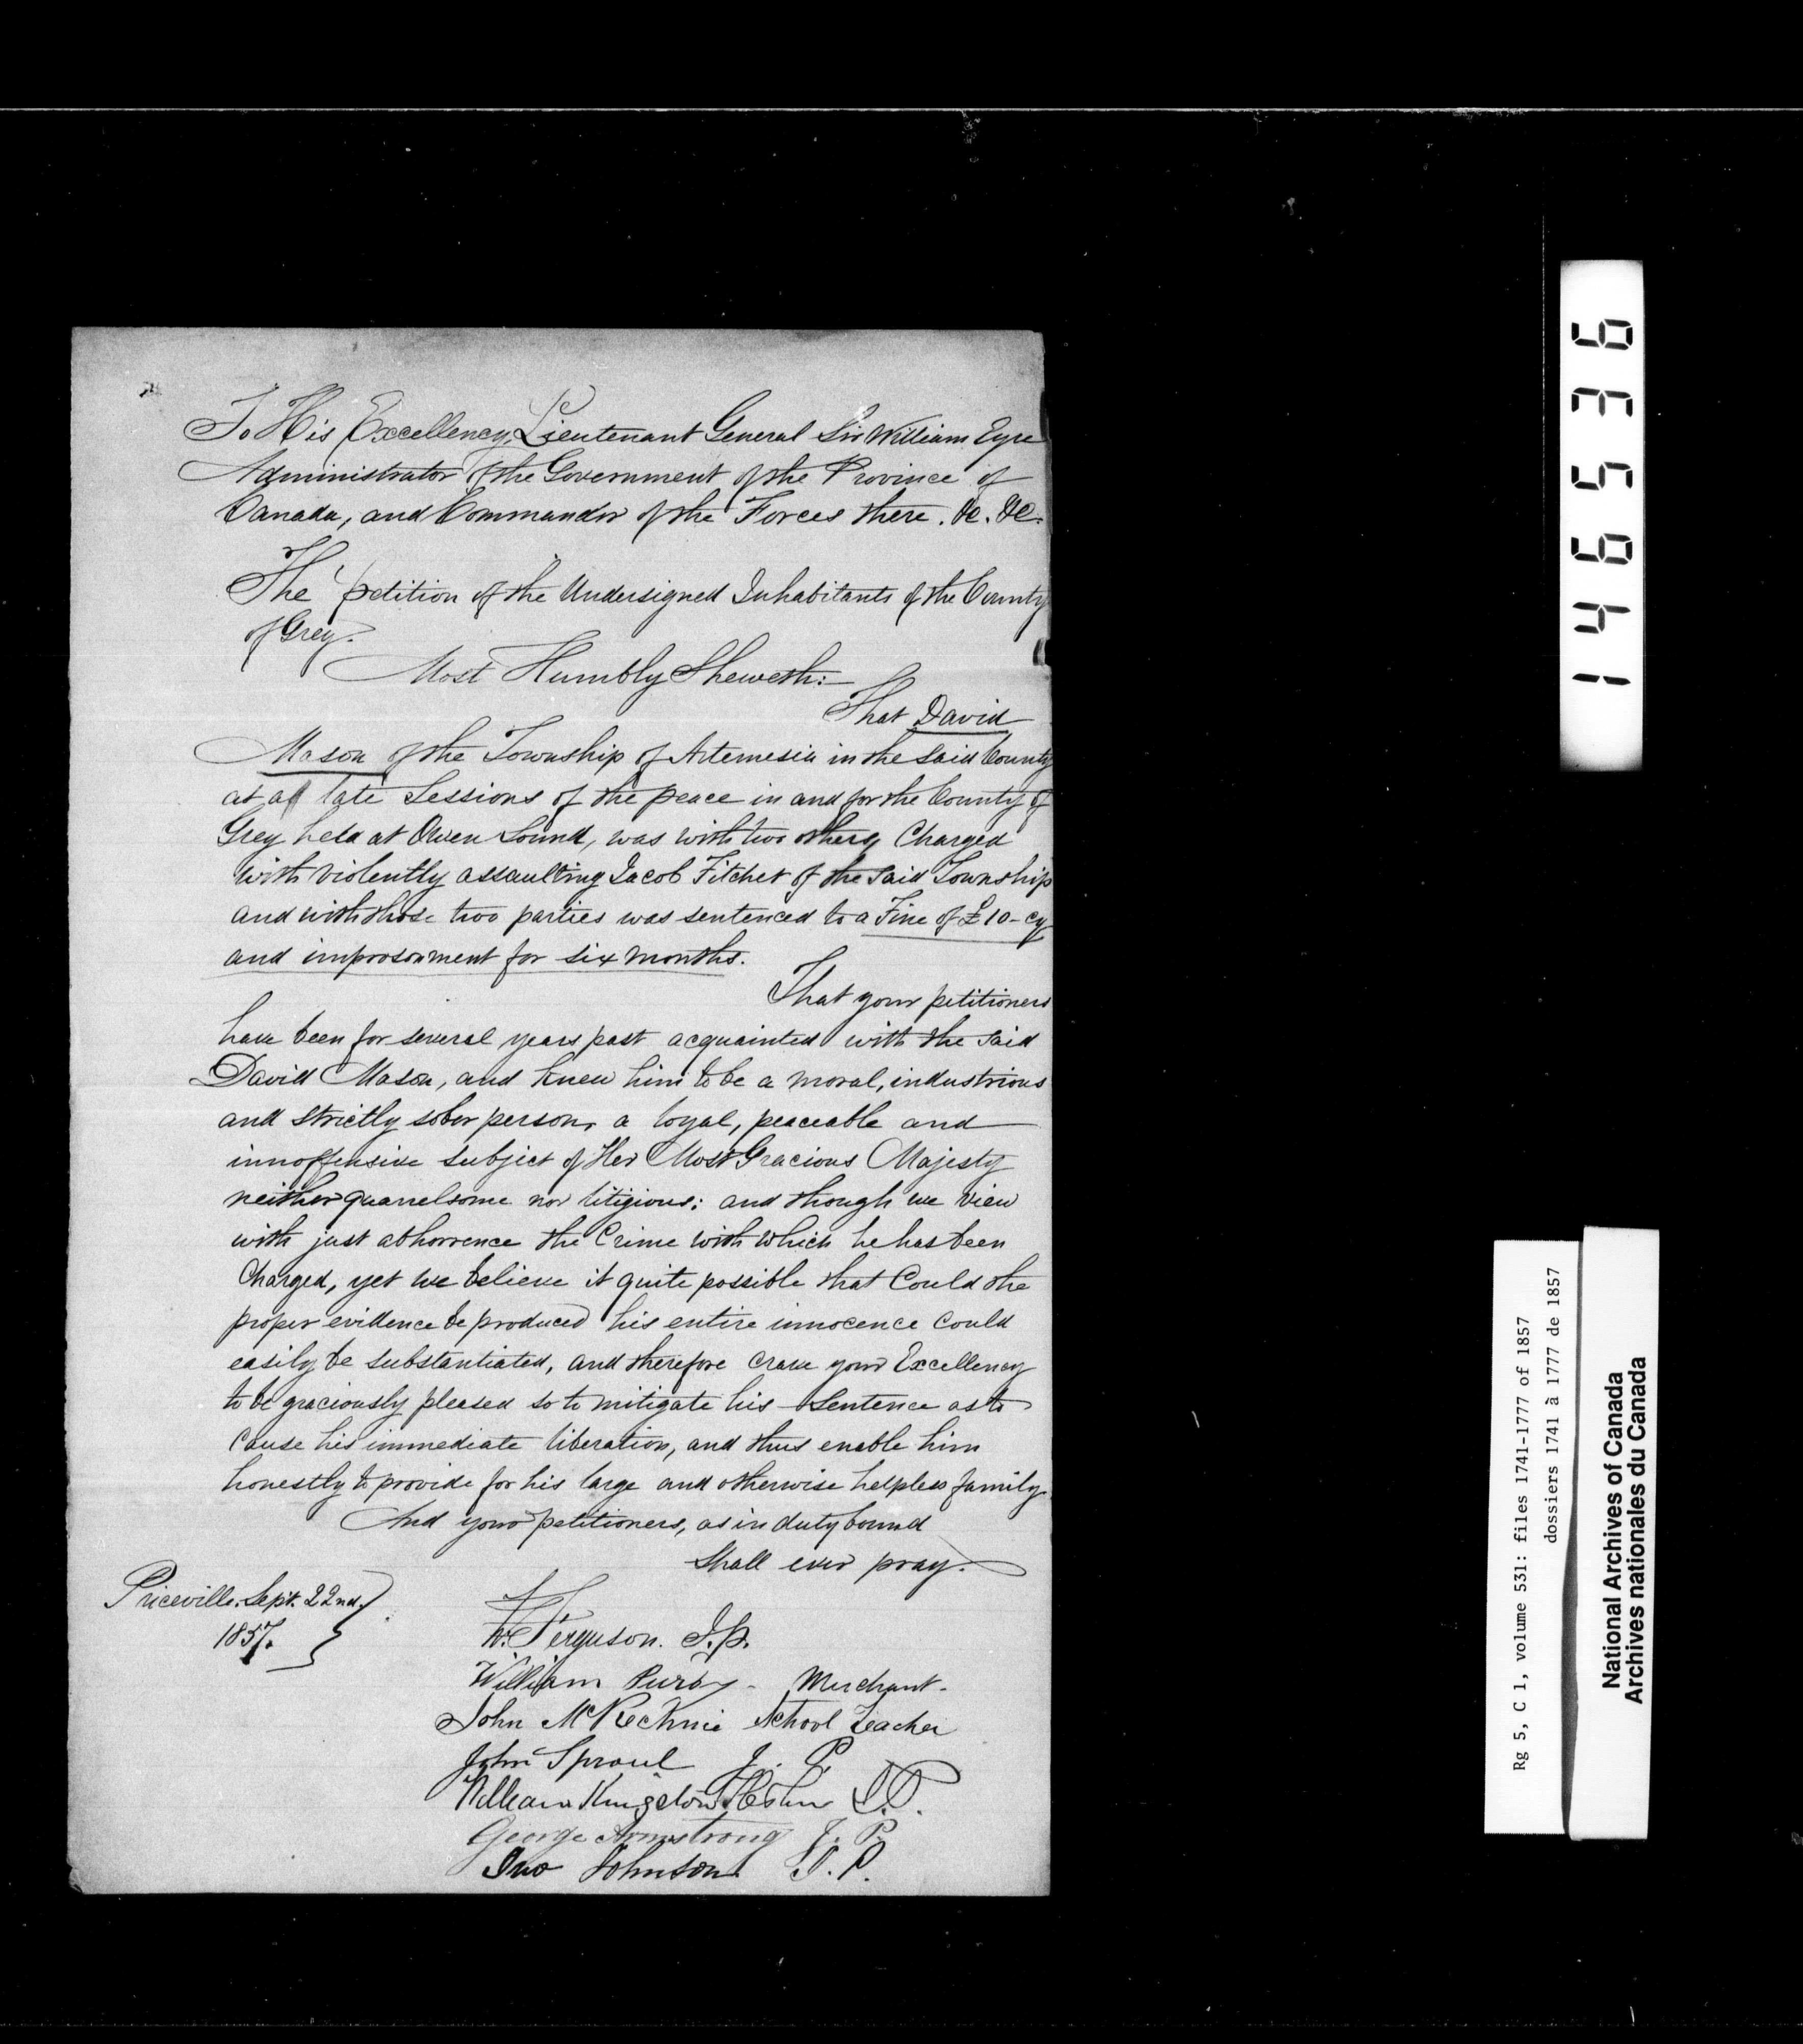 To His Excellency, Lieutenant General Sir William Eyre
Administrator of the Government of the Province of
Canada, and Commander of the Forces there. &c. &c.
The petition of the Undersigned Inhabitants of the County
of Grey.
Most Humbly Sheweth:
That David
Mason of the Township of Artemesia in the said County
at a late Sessions of the peace in and for the County of
Grey held at Owen Sound, was with two others, Charged
with violently assaulting Jacob Fitchet of the said Township
and with those two parties was sentenced to a Fine of £10-cy
and improsonment for six months.
That your petitioners
have been for several years past acquainted with the said
David Mason, and knew him to be a moral, industrious
and strictly sober person, a loyal, peaceable and
innoffensive subject of Her Most Gracious Majesty
neither quarrelsome nor litigious: and though we view
with just abhorrence the Crime with which he has been
Charged, yet we believe it quite possible that Could the
proper evidence be produced his entire innocence could
easily be substantiated, and therefore crave your Excellency
to be graciously pleased so to mitigate his Sentence as to
Cause his immediate liberation, and thus enable him
honestly to provide for his large and otherwise helpless family.
And your petitioners, as in duty bound
Shall ever pray.
Priceville. Sept. 22nd.
1857.
Ferguson. J.P.
William Purdy - Merchant.
John McKechnie School Teacher
John Sproul J. P.
William Kingston J.P.
George Armstrong J. P.
Jno Johnson J. P.
146536
Rg 5, C 1, volume 531: files 1741-1777 of 1857
dossiers 1741 à 1777 de 1857
National Archives of Canada
Archives nationales du Canada